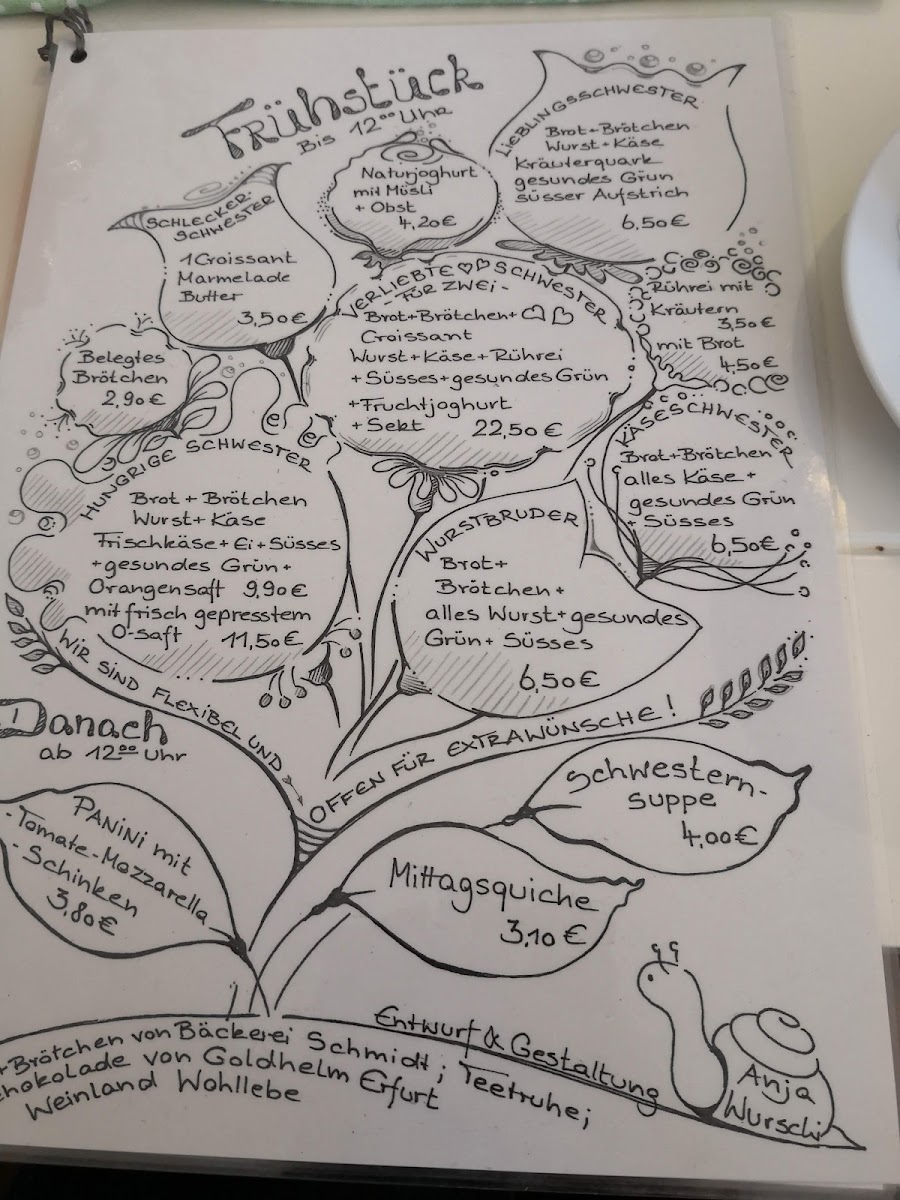 Frühstück
Bis 12⁰⁰ Uhr
LIEBLINGSSCHWESTER
Brot+Brötchen
Wurst+Käse
Kräuterquark
gesundes Grün
süsser Aufstrich
6,50€
Naturjoghurt
mit Müsli
+ Obst
4,20€
SCHLECKER-
SCHWESTER
1 Croissant
Marmelade
Butter
3,50€
VERLIEBTE SCHWESTER
- FÜR ZWEI -
Brot+Brötchen+
Croissant
Wurst+Käse+Rührei
+Süsses+gesundes Grün
+Fruchtjoghurt
+ Sekt 22,50€
Rührei mit
Kräutern
3,50€
mit Brot
4,50€
Belegtes
Brötchen
2,90€
KÄSESCHWESTER
Brot+Brötchen
alles Käse+
gesundes Grün
+ Süsses
6,50€
HUNGRIGE SCHWESTER
Brot + Brötchen
Wurst+Käse
Frischkäse+Ei+Süsses
+gesundes Grün+
Orangensaft 9,90€
mit frisch gepresstem
O-saft 11,50€
WURSTBRUDER
Brot+
Brötchen+
alles Wurst+gesundes
Grün+Süsses
6,50€
WIR SIND FLEXIBEL UND
OFFEN FÜR EXTRAWÜNSCHE!
Danach
ab 12⁰⁰ Uhr
Schwestern-
suppe
4,00€
PANINI mit
-Tomate-Mozzarella
-Schinken
3,80€
Mittagsquiche
3,10€
Entwurf & Gestaltung
Anja
Wurschi
+Brötchen von Bäckerei Schmidt; Teetruhe;
von Goldhelm Erfurt
Weinland Wohllebe